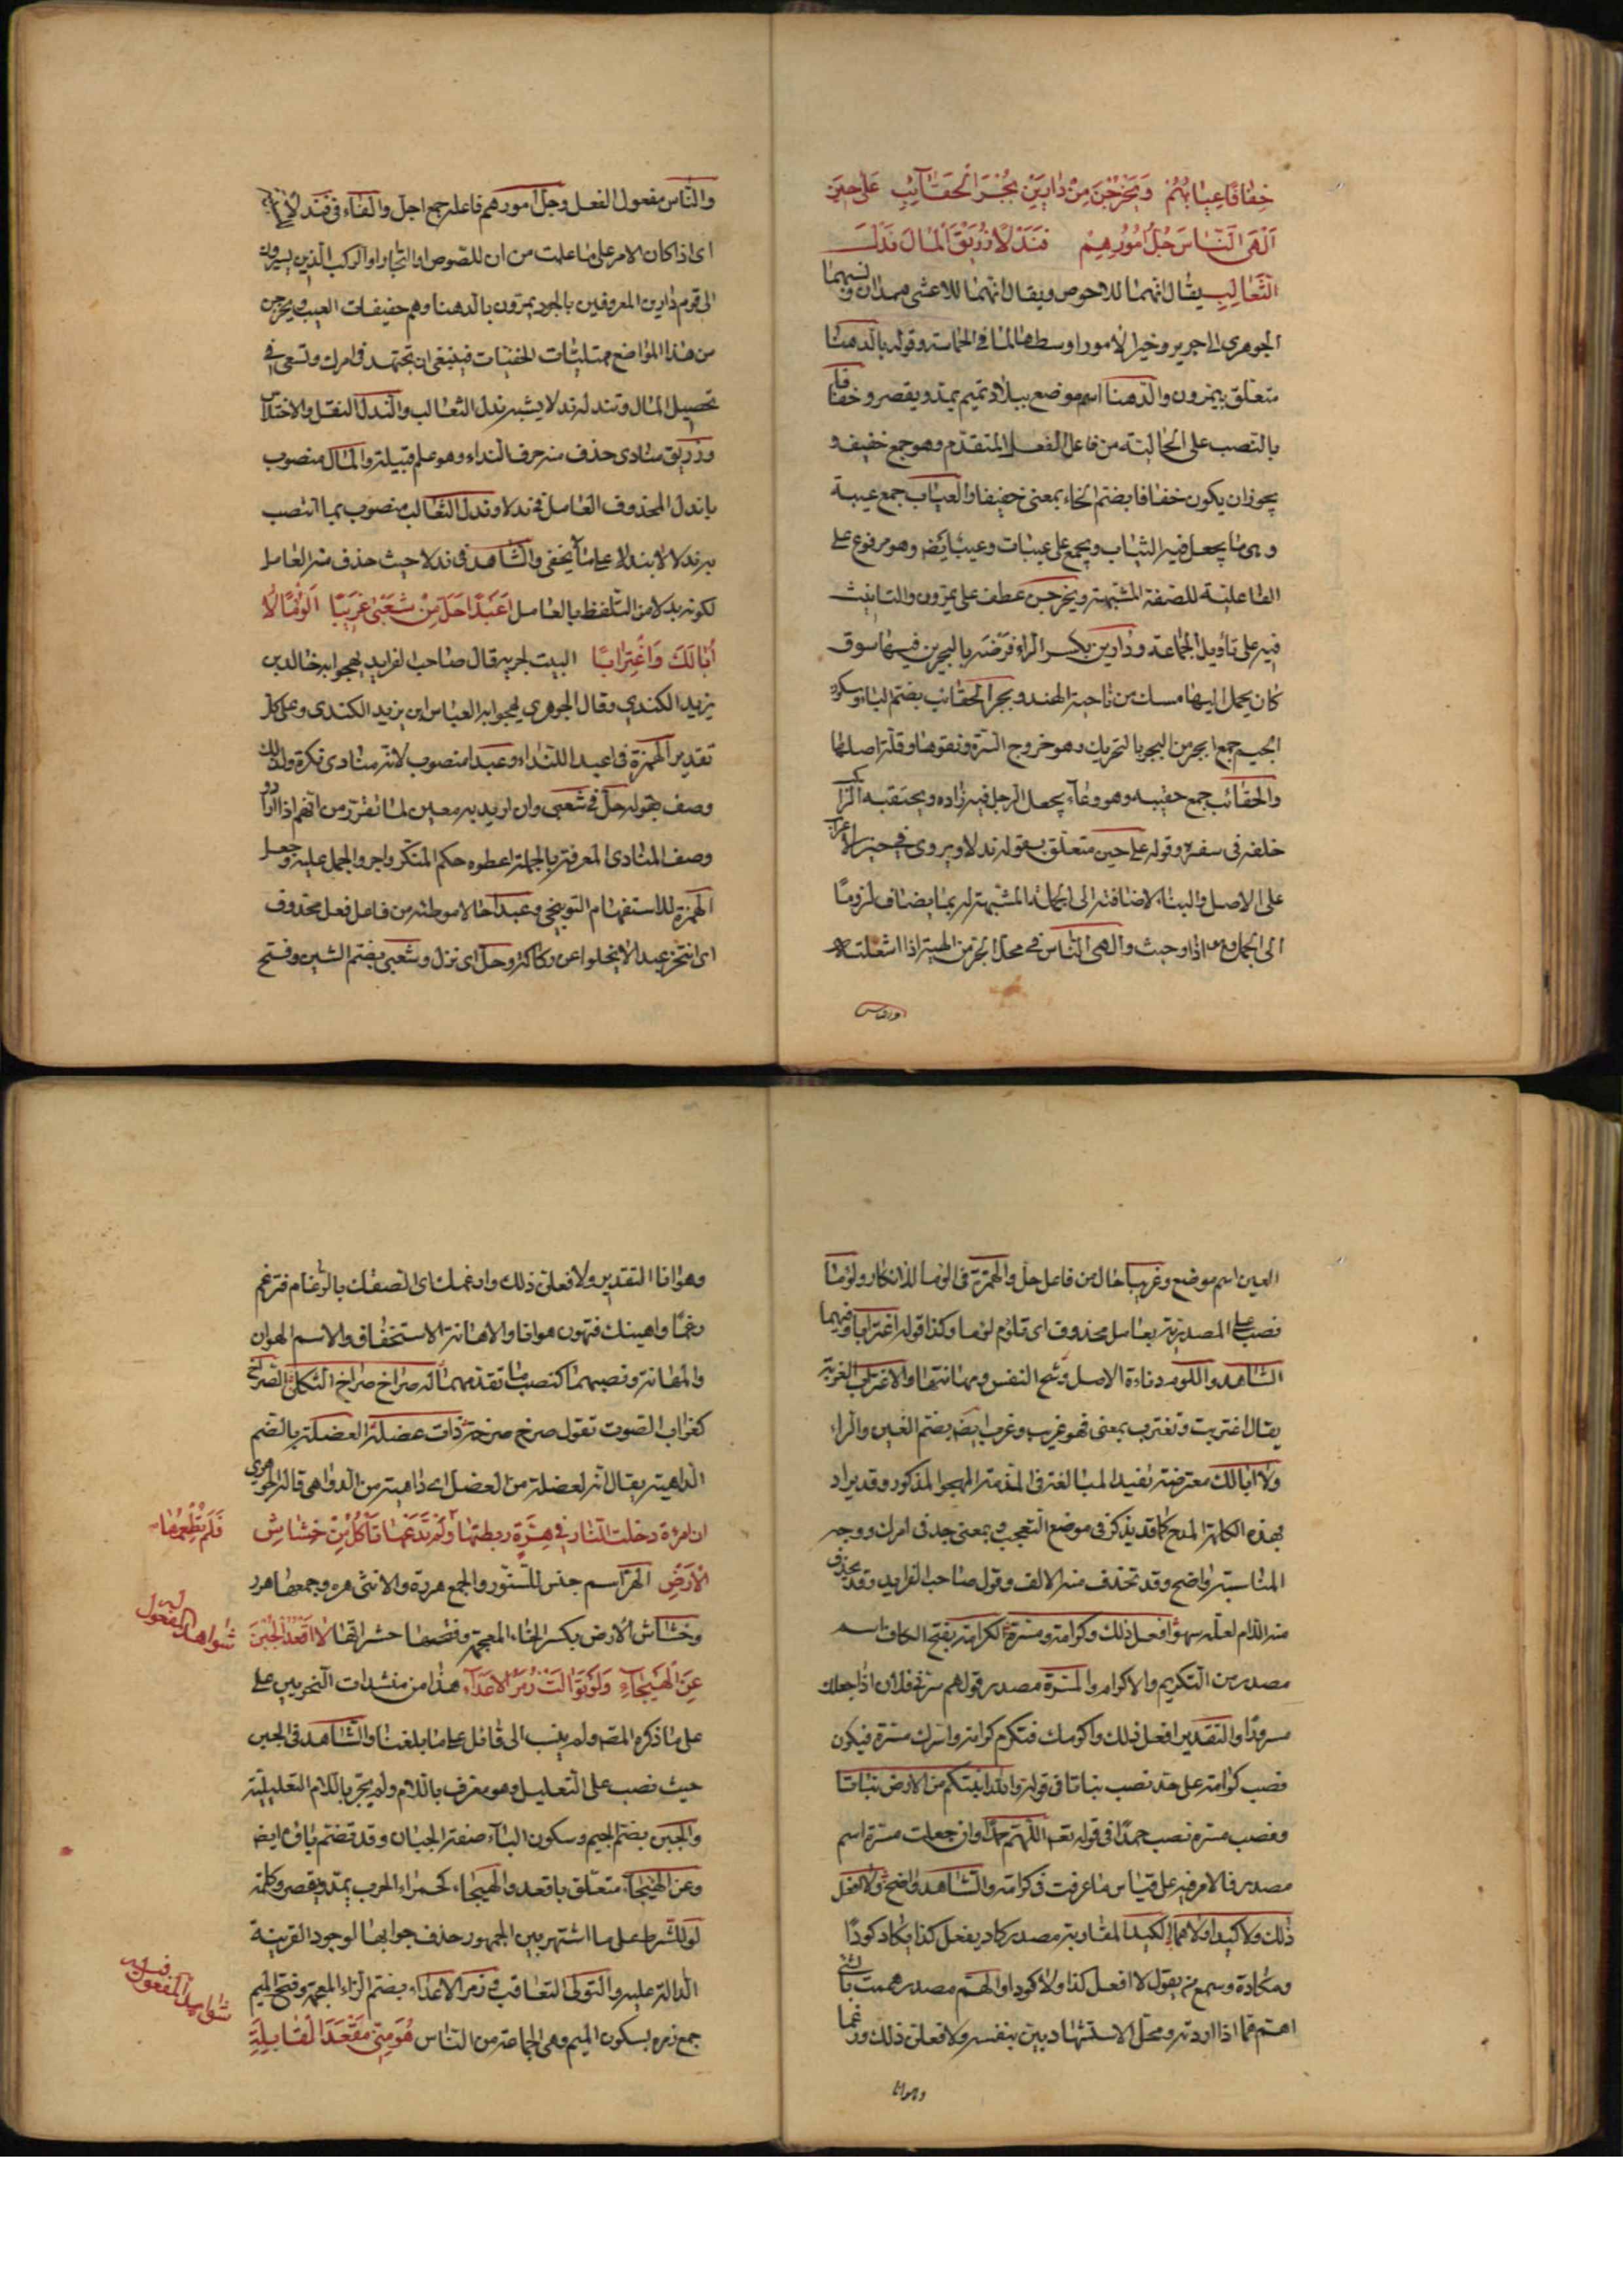 خِفٰافًا عِيٰابُهُمْ وَيَخْرُجْنَ مِنْ دٰارِينَ بُجْرَ الْحَقٰآئِبِ عَلٰى حِينَ
اَلْهَى النّٰاسَ جُلُّ اُمُورِهِمْ فَنَدْلًا زُرَيْقُ الْمٰالَ نَدْلَ
الثَّعٰالِبِ يقال انهما للاحوص ويقال انهما للاعشى همدان ونسبهما
الجوهرى الى جرير وخير الامور اوسطها لما فى الحماسة وقوله بالدهنا
متعلق بيمرون والدهنا اسم موضع ببلاد تميم يمد ويقصر وخفافا
بالنصب على الحالية من فاعل الفعل المتقدم وهو جمع خفيف و
يجوز ان يكون خفافا بضم الخاء بمعنى خفيفا والعياب جمع عيبة
وهى ما يجعل فيه الثياب ويجمع على عيبات وعيب ايضه وهو مرفوع على
الفاعلية للصفة المشبهة ويخرجن عطف على يمرون والتانيث
فيه على تأويل الجماعة ودارين بكسر الراء فرضة بالبحرين فيها سوق
كان يحمل اليها مسك من ناحية الهند وبجر الحقائب بضم الباء وسكون
الجيم جمع ابجر من البجر بالتحريك وهو خروج السرة ونتوها وقلة اصلها
والحقائب جمع حقيبه وهو وعآء يجعل الرجل فيه زاده ويحتقبه الراكب
خلفه فى سفره وقوله على حين متعلق بقوله ندلا ويروى فى حين الاعراب
على الاصل والبناء لاضافته الى الجملة المشبهة لم يضاف لزوما
الى الجمل وهو اذا وحيث والهى الناس فى محل الجر من الهيته اذا اشغلته
والناس
والناس مفعول الفعل وجل امورهم فاعله جمع اجل والفاء فى فندلا
اى اذا كان الامر على ما علمت من ان للصوص او التجار او الركب الذين يسيرون
الى قوم دارين المعروفين بالجود يمرون بالدهنا وهم خفيفات العيب ويخرجن
من هذا المواضع ممتليات الحقيبات فينبغى ان تجتهد فى امرك وتسعى فى
تحصيل المال وتندله ندلا يشبه ندل الثعالب والندل النقل والاختلاس
وزريق منادى حذف منه حرف النداء وهو علم قبيلة والمال منصوب
باندل المحذوف العامل فى ندلا وندل الثعالب منصوب بما انتصب
به ندلا لا بندلا على ما لا يخفى والشاهد فى ندلا حيث حذف منه العامل
لكونه بدلا من التلفظ بالعامل اَعَبْدًا حَلَّ مِنْ شُعَبٰى غَرِيبًا اَلُؤْمًا لٰا
اَبٰا لَكَ وَاغْتِرٰابًا البيت لجرير قال صاحب الفرايد يهجو ابه خالد بن
يزيد الكندى وقال الجوهرى يهجو ابه العباس بن يزيد الكندى وعلى كل
تقدير الهمزة فى اعبدا للنداء وعبدا منصوب لانه منادى نكرة ولذلك
وصف بقوله حل فى شعبى وان اريد به معين لما تقرر من انهم اذا ارادوا
وصف المنادى المعرفة بالجملة اعطوه حكم المنكر واجروا الجمل عليه وجعل
الهمزة للاستفهام التوبيخى وعبدا حالا موطئه من فاعل فعل محذوف
اى اتفتخر عبدا لا يخلوا عن ركاكة وحل اى نزل وشعبى بضم الشين وفتح
العين اسم موضع وغريبا حال من فاعل حل والهمزة فى الوما للانكار ولوما
نصب على المصدرية بعامل محذوف اى تلوم لوما وكذا قوله اغترابا وفيهما
الشاهد واللوم دناءة الاصل وشح النفس ومهانتها والاغتراب الغربة
يقال اغتربت وتغترب بمعنى فهو غريب وغرب ايضه بضم الغين والراء
ولا ابالك معترضة تفيد المبالغة فى المذمة المهجو المذكور وقد يراد
بهذه الكلمة المدح كما قد يذكر فى موضع التعجب وبمعنى جد فى امرك ووجه
المناسبة واضح وقد تحذف منه الالف وقول صاحب الفرايد وقد يحذف
منه اللام لعله سهو افعل ذلك وكرامة ومسرة الكرامة بفتح الكاف اسم
مصدر من التكريم والاكرام والمسرة مصدر قولهم سرنى فلان اذا جعلك
مسرورا والتقدير افعل ذلك واكرمك فتكرم كرامة واسرك مسرة فيكون
نصب كرامة على حد نصب نباتا فى قوله والله انبتكم من الارض نباتا
ونصب مسرة نصب حمدا فى قوله تعه اللهم حمدا وان جعلت مسرة اسم
مصدر فالامر فيه على قياس ما عرفت فى كرامة والشاهد واضح ولا افعل
ذلك ولا كيدا ولا هما الكيد المقاربة مصدر كاد يفعل كذا يكاد كودا
ومكادة وسمع من يقول لا افعل كذا ولا كودا والهم مصدر هممت بالشئ
اهتم هما اذا اردته ومحل الاستشهاد بين بنفسه ولا فعلن ذلك ورغما
وهوانا
وهوانا التقدير ولا فعلن ذلك وارغمك اى الصقك بالرغام فترغم
رغما واهينك فتهون هوانا والاهانة الاستخفاف والاسم الهوان
والمهانة ونصبهما كنصب ما تقدمهما له صراخ صراخ الثكلى الصراخ
كغراب الصوت تقول صرخ صرخة ذات عضلة العضلة بالضم
الداهية يقال انه لعضلة من العضل اى داهية من الدواهى قاله الجوهرى
ان امرءة دخلت النار فى هِرَّةٍ ربطتها وَلَمْ تَدَعْهٰا تَأْكُلُ مِنْ خِشٰاشِ
فَلَمْ تُطْعِمْهٰا
الْاَرْضِ الهر اسم جنس للسنور والجمع هررة والانثى هره وجمعها هرر
وخشاش الارض بكسر الخاء المعجمة وفتحها حشراتها لٰا اَقْعُدُ الْجُبْنَ
شواهد المفعول له
عَنِ الْهَيْجٰآءِ وَلَوْ تَوٰالَتْ زُمَرُ الْاَعْدٰآءِ هذا من منشدات النحويين على
على ما ذكره المصه ولم ينسب الى قائل على ما بلغنا والشاهد فى الجبن
حيث نصب على التعليل وهو معرف باللام ولم يجر باللام التعليلية
والجبن بضم الجيم وسكون الباء صفة الجبان وقد تضم باؤه ايضه
وعن الهيجاء متعلق باقعد والهيجاء كحمراء الحرب يمد ويقصر وكلمة
لو للشرط على ما اشتهر بين الجمهور حذف جوابها لوجود القرينة
الدالة عليه والتوالى التعاقب وزمر الاعداء بضم الزاء المعجمة وفتح الميم
شواهد المفعول فيه
جمع زمره بسكون الميم وهى الجماعة من الناس هُوَ مِنّى مَقْعَدَ الْقٰابِلَةِ